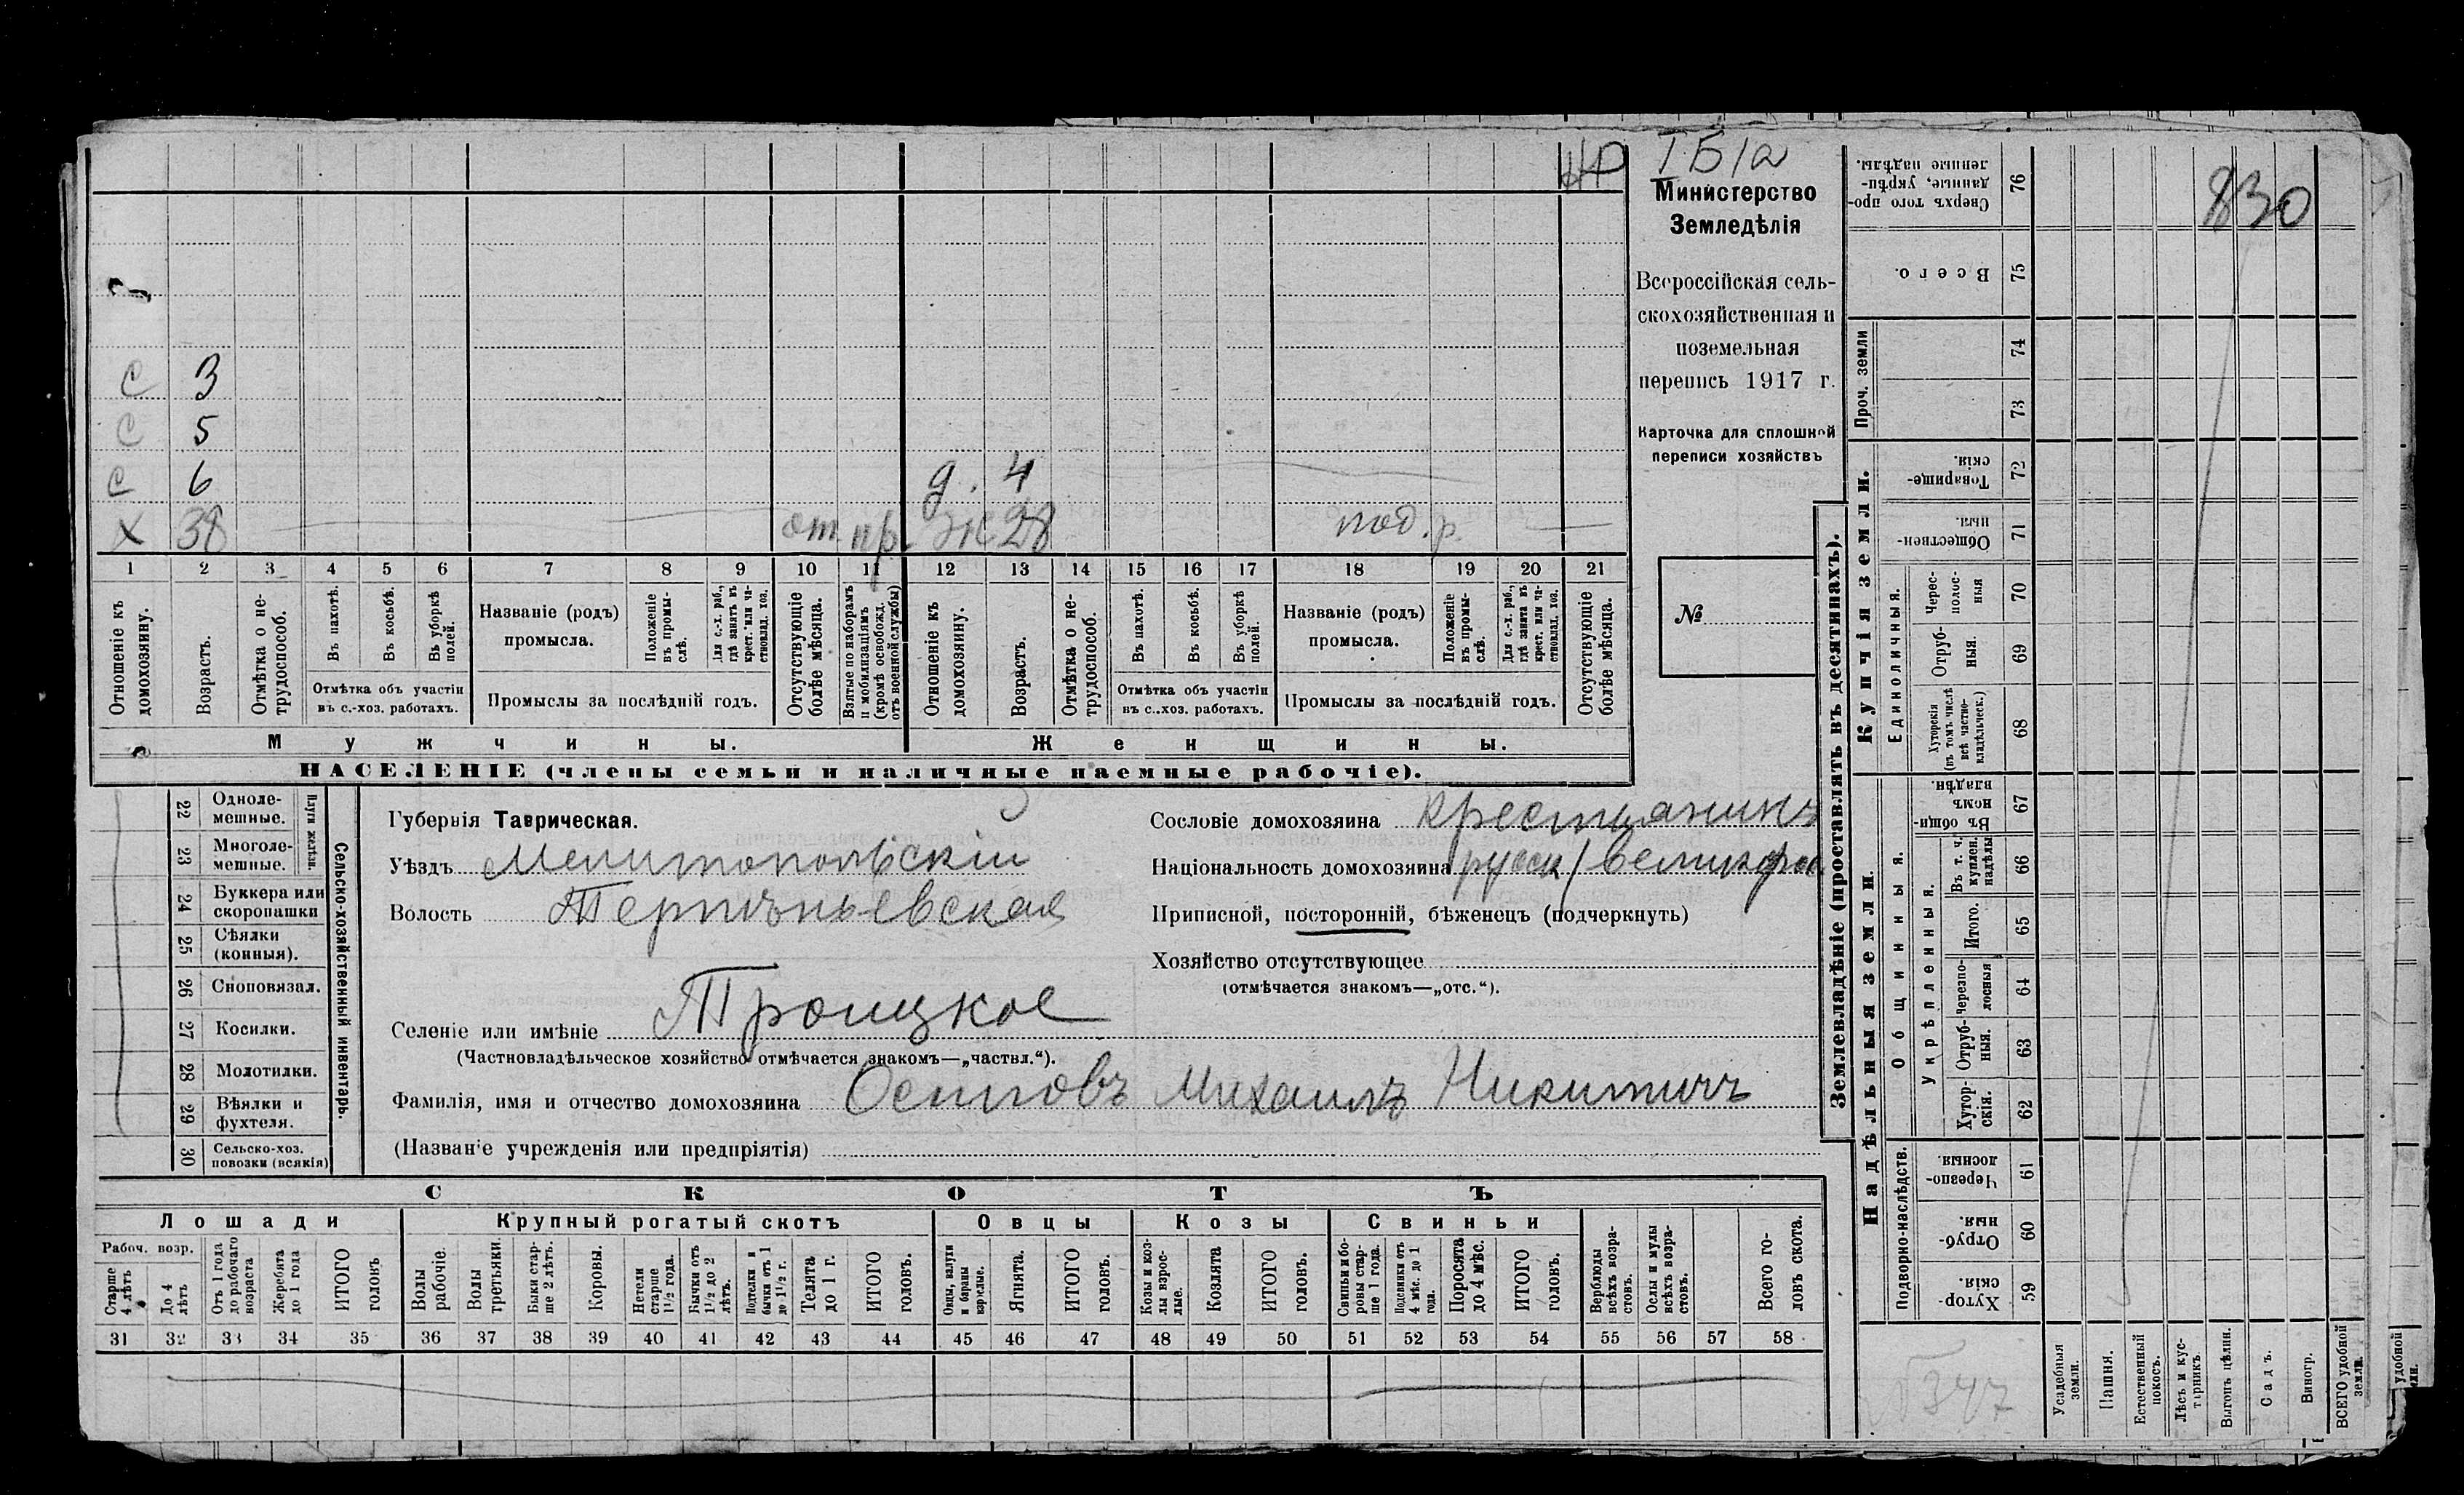 НР IБ/а
830
Министерство
Земледѣлія
Всероссійская сель-
скохозяйственная и
поземельная
перепись 1917 г.
Карточка для сплошной
переписи хозяйствъ
№
с 3
с 5
с 6 д. 4
х 38 от. пр. ж 28 под. р.
1 2 3 4 5 6 7 8 9 10 11 12 13 14 15 16 17 18 19 20 21
Отношеніе къ домохозяину.
Возрастъ.
Отмѣтка о не-трудоспособ.
Въ пахотѣ.
Въ косьбѣ.
Въ уборкѣ полей.
Отмѣтка объ участіи
въ с.-хоз. работахъ.
Названіе (родъ)
промысла.
Положеніе въ промы-слѣ.
Для с.-х. раб., гдѣ занятъ въ крест. или ча-стновлад. хоз.
Промыслы за послѣдній годъ.
Отсутствующіе болѣе мѣсяца.
Взятые по наборамъ и мобилизаціямъ (кромѣ освобожд. отъ военной службы)
Отношеніе къ домохозяину.
Возрастъ.
Отмѣтка о не-трудоспособ.
Въ пахотѣ.
Въ косьбѣ.
Въ уборкѣ полей.
Отмѣтка объ участіи
въ с.-хоз. работахъ.
Названіе (родъ)
промысла.
Положеніе въ промы-слѣ.
Для с.-х. раб., гдѣ занята въ крест. или ча-стновлад. хоз.
Промыслы за послѣдній годъ.
Отсутствующіе болѣе мѣсяца.
Мужчины. Женщины.
НАСЕЛЕНІЕ (члены семьи и наличные наемные рабочіе).
Сельско-хозяйственный инвентарь.
Плуги желѣзн.
22 Одноле-мешные.
23 Многоле-мешные.
24 Буккера или скоропашки
25 Сѣялки (конныя).
26 Сноповязал.
27 Косилки.
28 Молотилки.
29 Вѣялки и фухтеля.
30 Сельско-хоз. повозки (всякія)
Губернія Таврическая.
Уѣздъ Мелитопольскій
Волость Терпѣньевская
Селеніе или имѣніе Троицкое
(Частновладѣльческое хозяйство отмѣчается знакомъ—„частвл.“).
Фамилія, имя и отчество домохозяина Осиповъ Михаилъ Никитичъ
(Названіе учрежденія или предпріятія)
Сословіе домохозяина крестьянинъ
Національность домохозяина русск/великорос
Приписной, посторонній, бѣженецъ (подчеркнуть)
Хозяйство отсутствующее
(отмѣчается знакомъ—„отс.“).
СКОТЪ
Лошади Крупный рогатый скотъ Овцы Козы Свиньи
Рабоч. возр.
Старше 4 лѣтъ
До 4 лѣтъ
Отъ 1 года до рабочаго возраста
Жеребята до 1 года
ИТОГО головъ
Волы рабочіе.
Волы третьяки.
Быки стар-ше 2 лѣтъ.
Коровы.
Нетели старше 1½ года.
Бычки отъ 1½ до 2 лѣтъ.
Подтелки и бычки отъ 1 до 1½ г.
Телята до 1 г.
ИТОГО головъ.
Овцы, валухи и бараны взрослые.
Ягнята.
ИТОГО головъ.
Козы и коз-лы взрос-лые.
Козлята
ИТОГО головъ.
Свиньи и бо-ровы стар-ше 1 года.
Подсвинки отъ 4 мѣс. до 1 года.
Поросята до 4 мѣс.
ИТОГО головъ.
Верблюды всѣхъ возра-стовъ.
Ослы и мулы всѣхъ возра-стовъ.
Всего го-ловъ скота.
31 32 33 34 35 36 37 38 39 40 41 42 43 44 45 46 47 48 49 50 51 52 53 54 55 56 57 58
Землевладѣніе (проставлять въ десятинахъ).
Надѣльныя земли. Купчія земли. Проч. земли
Подворно-наслѣдств. Общинныя. Единоличныя.
Укрѣпленныя.
76 Сверхъ того про-данные, укрѣп-ленные надѣлы.
75 Всего.
74
73
72 Товарище-скія.
71 Обществен-ныя.
70 Черес-полос-ныя
69 Отруб-ныя.
68 Хуторскія (въ томъ числѣ всѣ частно-владѣльческ.)
67 Въ общи-номъ владѣн.
66 Въ т. ч. куплен. надѣлы
65 Итого.
64 Черезпо-лосныя
63 Отруб-ныя.
62 Хутор-скія.
61 Черезпо-лосныя.
60 Отруб-ныя.
59 Хутор-скія.
Усадебныя земли.
Пашня.
Естественный покосъ.
Лѣсъ и кус-тарникъ.
Выгонъ цѣлин.
Садъ.
Виногр.
ВСЕГО удобной земли.
удобной
347